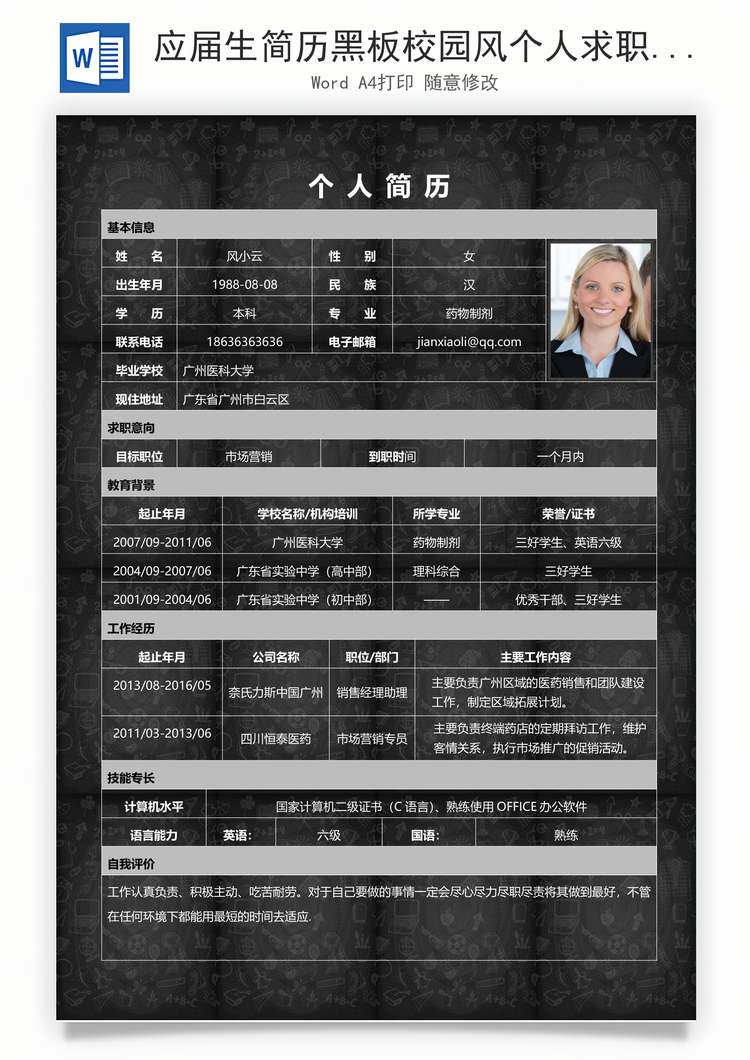 W
应届生简历黑板校园风个人求职...
Word A4打印 随意修改
个人简历
基本信息
姓 名 风小云 性 别 女
出生年月 1988-08-08 民 族 汉
学 历 本科 专 业 药物制剂
联系电话 18636363636 电子邮箱 jianxiaoli@qq.com
毕业学校 广州医科大学
现住地址 广东省广州市白云区
求职意向
目标职位 市场营销 到职时间 一个月内
教育背景
起止年月 学校名称/机构培训 所学专业 荣誉/证书
2007/09-2011/06 广州医科大学 药物制剂 三好学生、英语六级
2004/09-2007/06 广东省实验中学（高中部） 理科综合 三好学生
2001/09-2004/06 广东省实验中学（初中部） —— 优秀干部、三好学生
工作经历
起止年月 公司名称 职位/部门 主要工作内容
2013/08-2016/05 奈氏力斯中国广州 销售经理助理 主要负责广州区域的医药销售和团队建设
工作，制定区域拓展计划。
2011/03-2013/06 四川恒泰医药 市场营销专员 主要负责终端药店的定期拜访工作，维护
客情关系，执行市场推广的促销活动。
技能专长
计算机水平 国家计算机二级证书（C 语言）、熟练使用 OFFICE 办公软件
语言能力 英语： 六级 国语： 熟练
自我评价
工作认真负责、积极主动、吃苦耐劳。对于自己要做的事情一定会尽心尽力尽职尽责将其做到最好，不管
在任何环境下都能用最短的时间去适应.